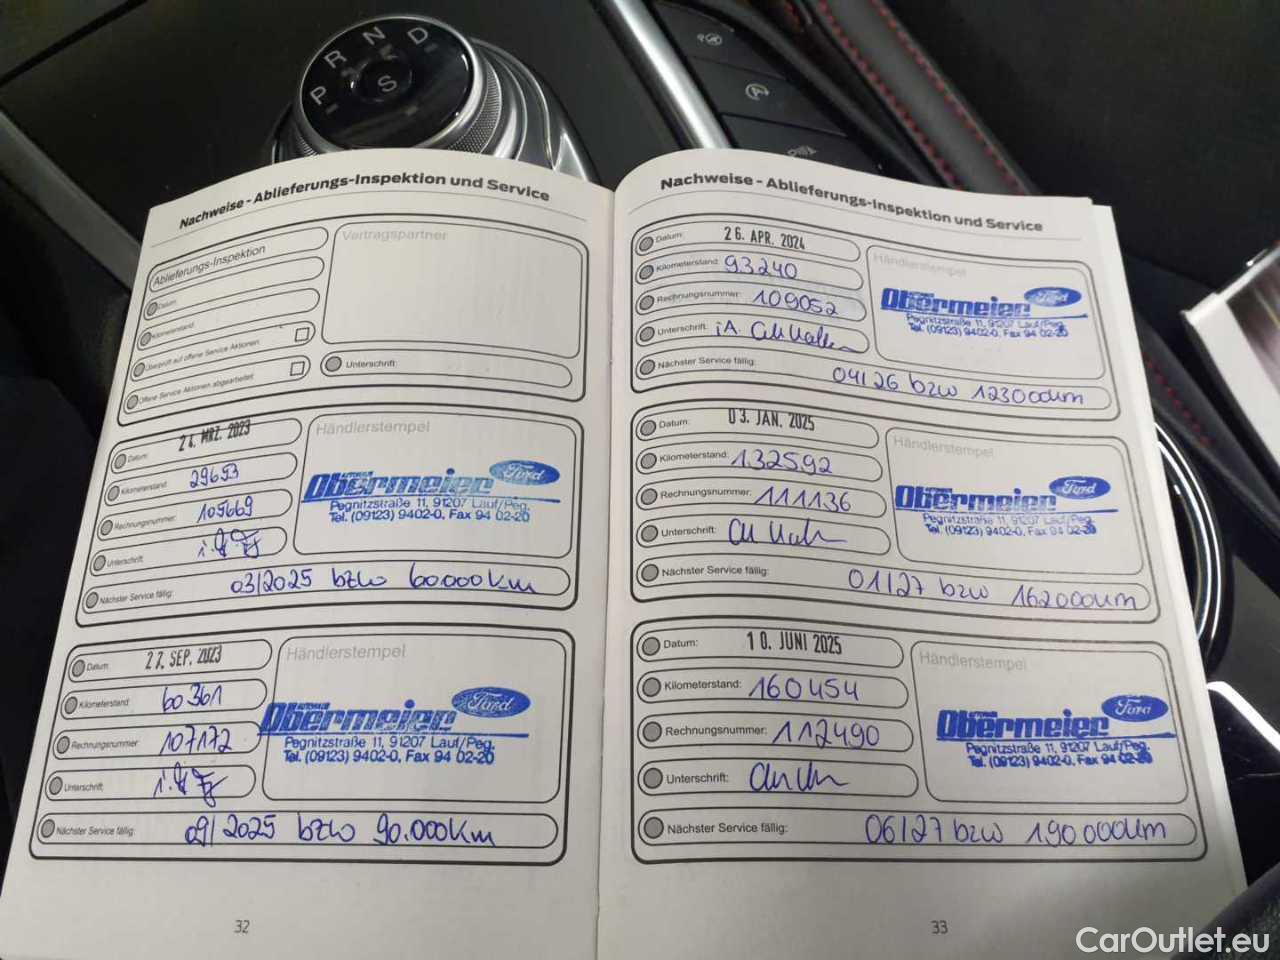 P R N D
S
Nachweise - Ablieferungs-Inspektion und Service
Ablieferungs-Inspektion
Datum:
Kilometerstand:
Überprüft auf offene Service Aktionen:
Offene Service Aktionen abgearbeitet:
Vertragspartner
Unterschrift:
Datum: 24. MRZ. 2023
Kilometerstand: 29653
Rechnungsnummer: 105669
Unterschrift:
Nächster Service fällig: 03/2025 bzw 60.000km
Händlerstempel
Obermeier Ford
Pegnitzstraße 11, 91207 Lauf/Peg.
Tel. (09123) 9402-0, Fax 94 02-20
Datum: 27. SEP. 2023
Kilometerstand: 60361
Rechnungsnummer: 107172
Unterschrift:
Nächster Service fällig: 09/2025 bzw 90.000km
Händlerstempel
Obermeier Ford
Pegnitzstraße 11, 91207 Lauf/Peg.
Tel. (09123) 9402-0, Fax 94 02-20
32
Nachweise - Ablieferungs-Inspektion und Service
Datum: 26. APR. 2024
Kilometerstand: 93240
Rechnungsnummer: 109052
Unterschrift: iA.
Nächster Service fällig: 04/26 bzw 123000km
Händlerstempel
Obermeier Ford
Pegnitzstraße 11, 91207 Lauf/Peg.
Tel. (09123) 9402-0, Fax 94 02-20
Datum: 03. JAN. 2025
Kilometerstand: 132592
Rechnungsnummer: 111136
Unterschrift:
Nächster Service fällig: 01/27 bzw 162000km
Händlerstempel
Obermeier Ford
Pegnitzstraße 11, 91207 Lauf/Peg.
Tel. (09123) 9402-0, Fax 94 02-20
Datum: 10. JUNI 2025
Kilometerstand: 160454
Rechnungsnummer: 112490
Unterschrift:
Nächster Service fällig: 06/27 bzw 190000km
Händlerstempel
Obermeier Ford
Pegnitzstraße 11, 91207 Lauf/Peg.
Tel. (09123) 9402-0, Fax 94 02-20
33
CarOutlet.eu